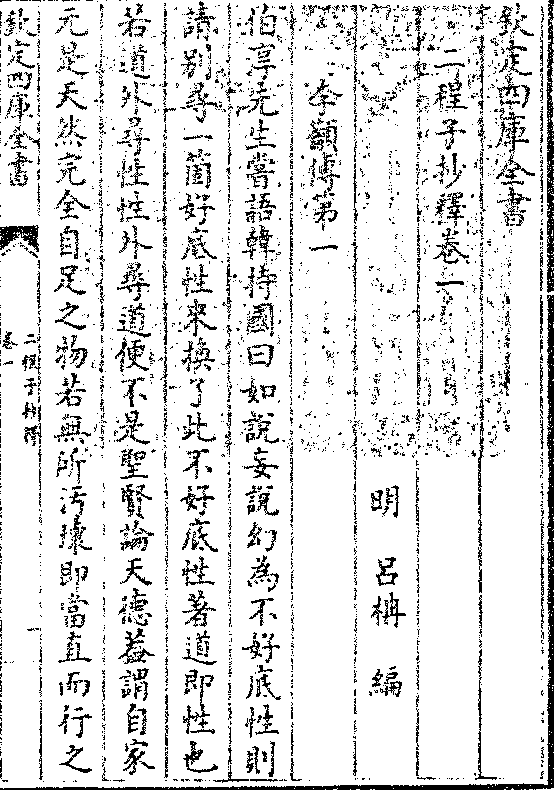 欽定四庫全書
二程子抄釋卷一
明 呂柟 編
李籲傳第一
伯淳先生嘗語韓持國曰如説妄説幻為不好底性則
請别尋一箇好底性來換了此不好底性著道即性也
若道外尋性性外尋道便不是聖賢論天德蓋謂自家
元是天然完全自足之物若無所汚壞即當直而行之
欽定四庫全書
二程子抄釋
卷一
一